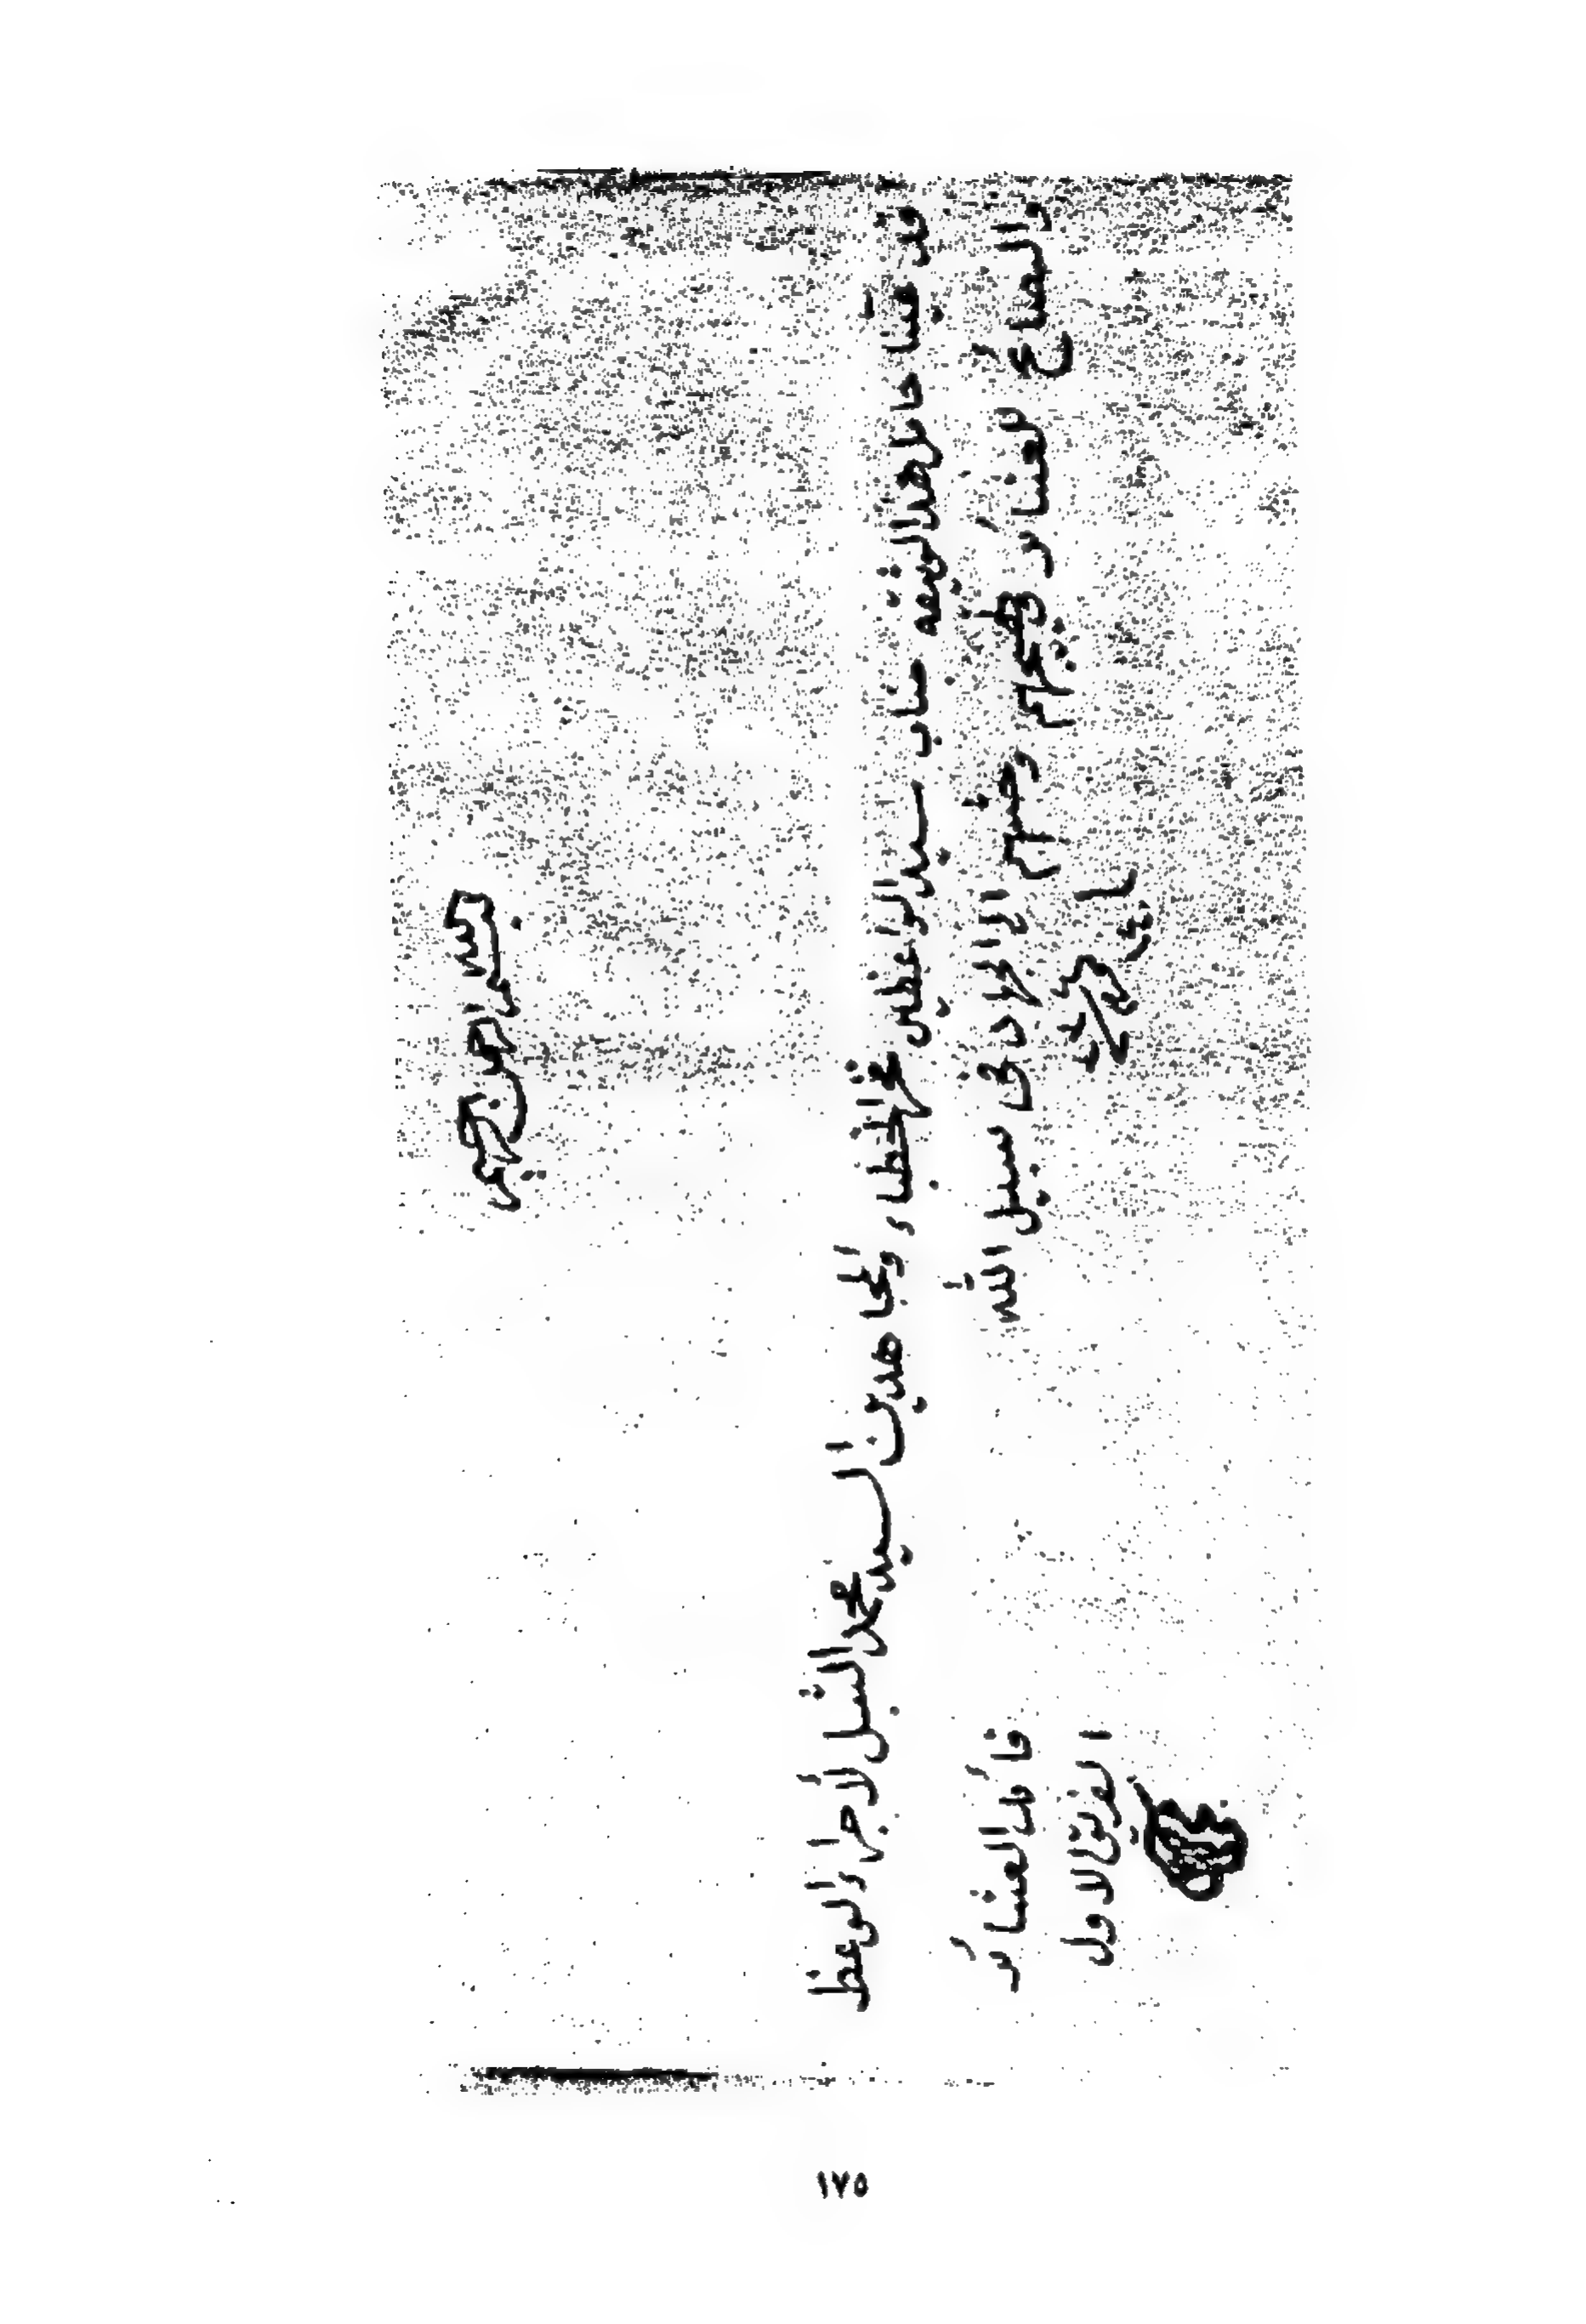 بسم الله الرحمن الرحيم
قد عينا حامل هذا الوثيقه جناب سيد الواعظين فخر الخطباء والمجاهدين السيد محمد الشبل لأجراء الوعظ
والنصائح للعشائر وحثهم الا الجهاد في سبيل الله
قائد العشائر
الفريق الاول
١٧٥